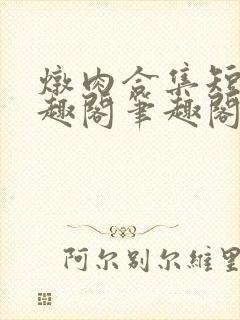 燉肉合集短
趣閣筆趣閣
阿尔别尔維里